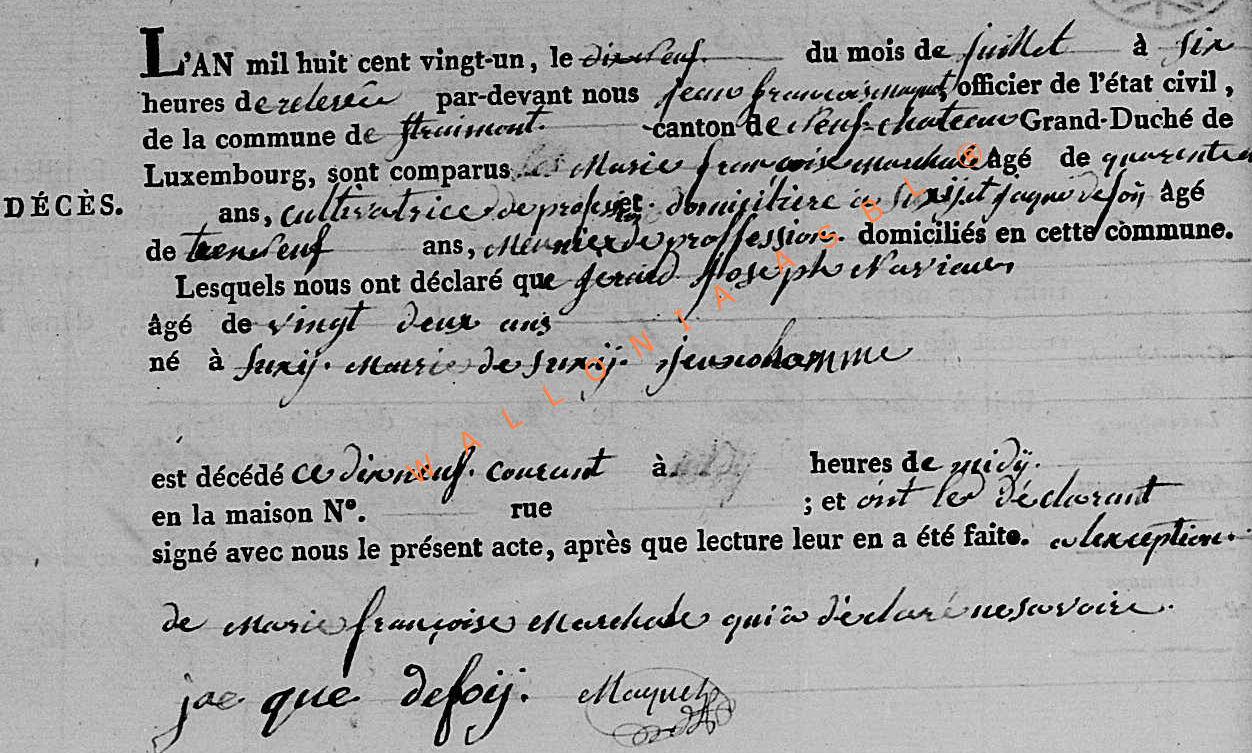 L'AN mil huit cent vingt-un, le dixneuf. du mois de juillet à six
heures de relevée par-devant nous jean françois Maquet, officier de l'état civil,
de la commune de straimont. canton de Neufchateau Grand-Duché de
Luxembourg, sont comparus Marie françoise Marchale Âgé de quarente
DÉCÈS.
ans, cultivatrice de profession. domiciliere a suxij et jaque defoij Âgé
de trenneuf ans, Meunier de proffession. domiciliés en cette commune.
Lesquels nous ont déclaré que gerard joseph
âgé de vingt deux ans
né à suxij. Mairie de suxij. jeunehomme
est décédé ce dixneuf. courant à heures de midÿ.
en la maison N°. rue ; et ont les déclarant
signé avec nous le présent acte, après que lecture leur en a été faite. a lexception
de Marie françoise Marchale qui a déclaré ne savoire.
jac que defoij. Maquet
WALLONIA ASBL ®